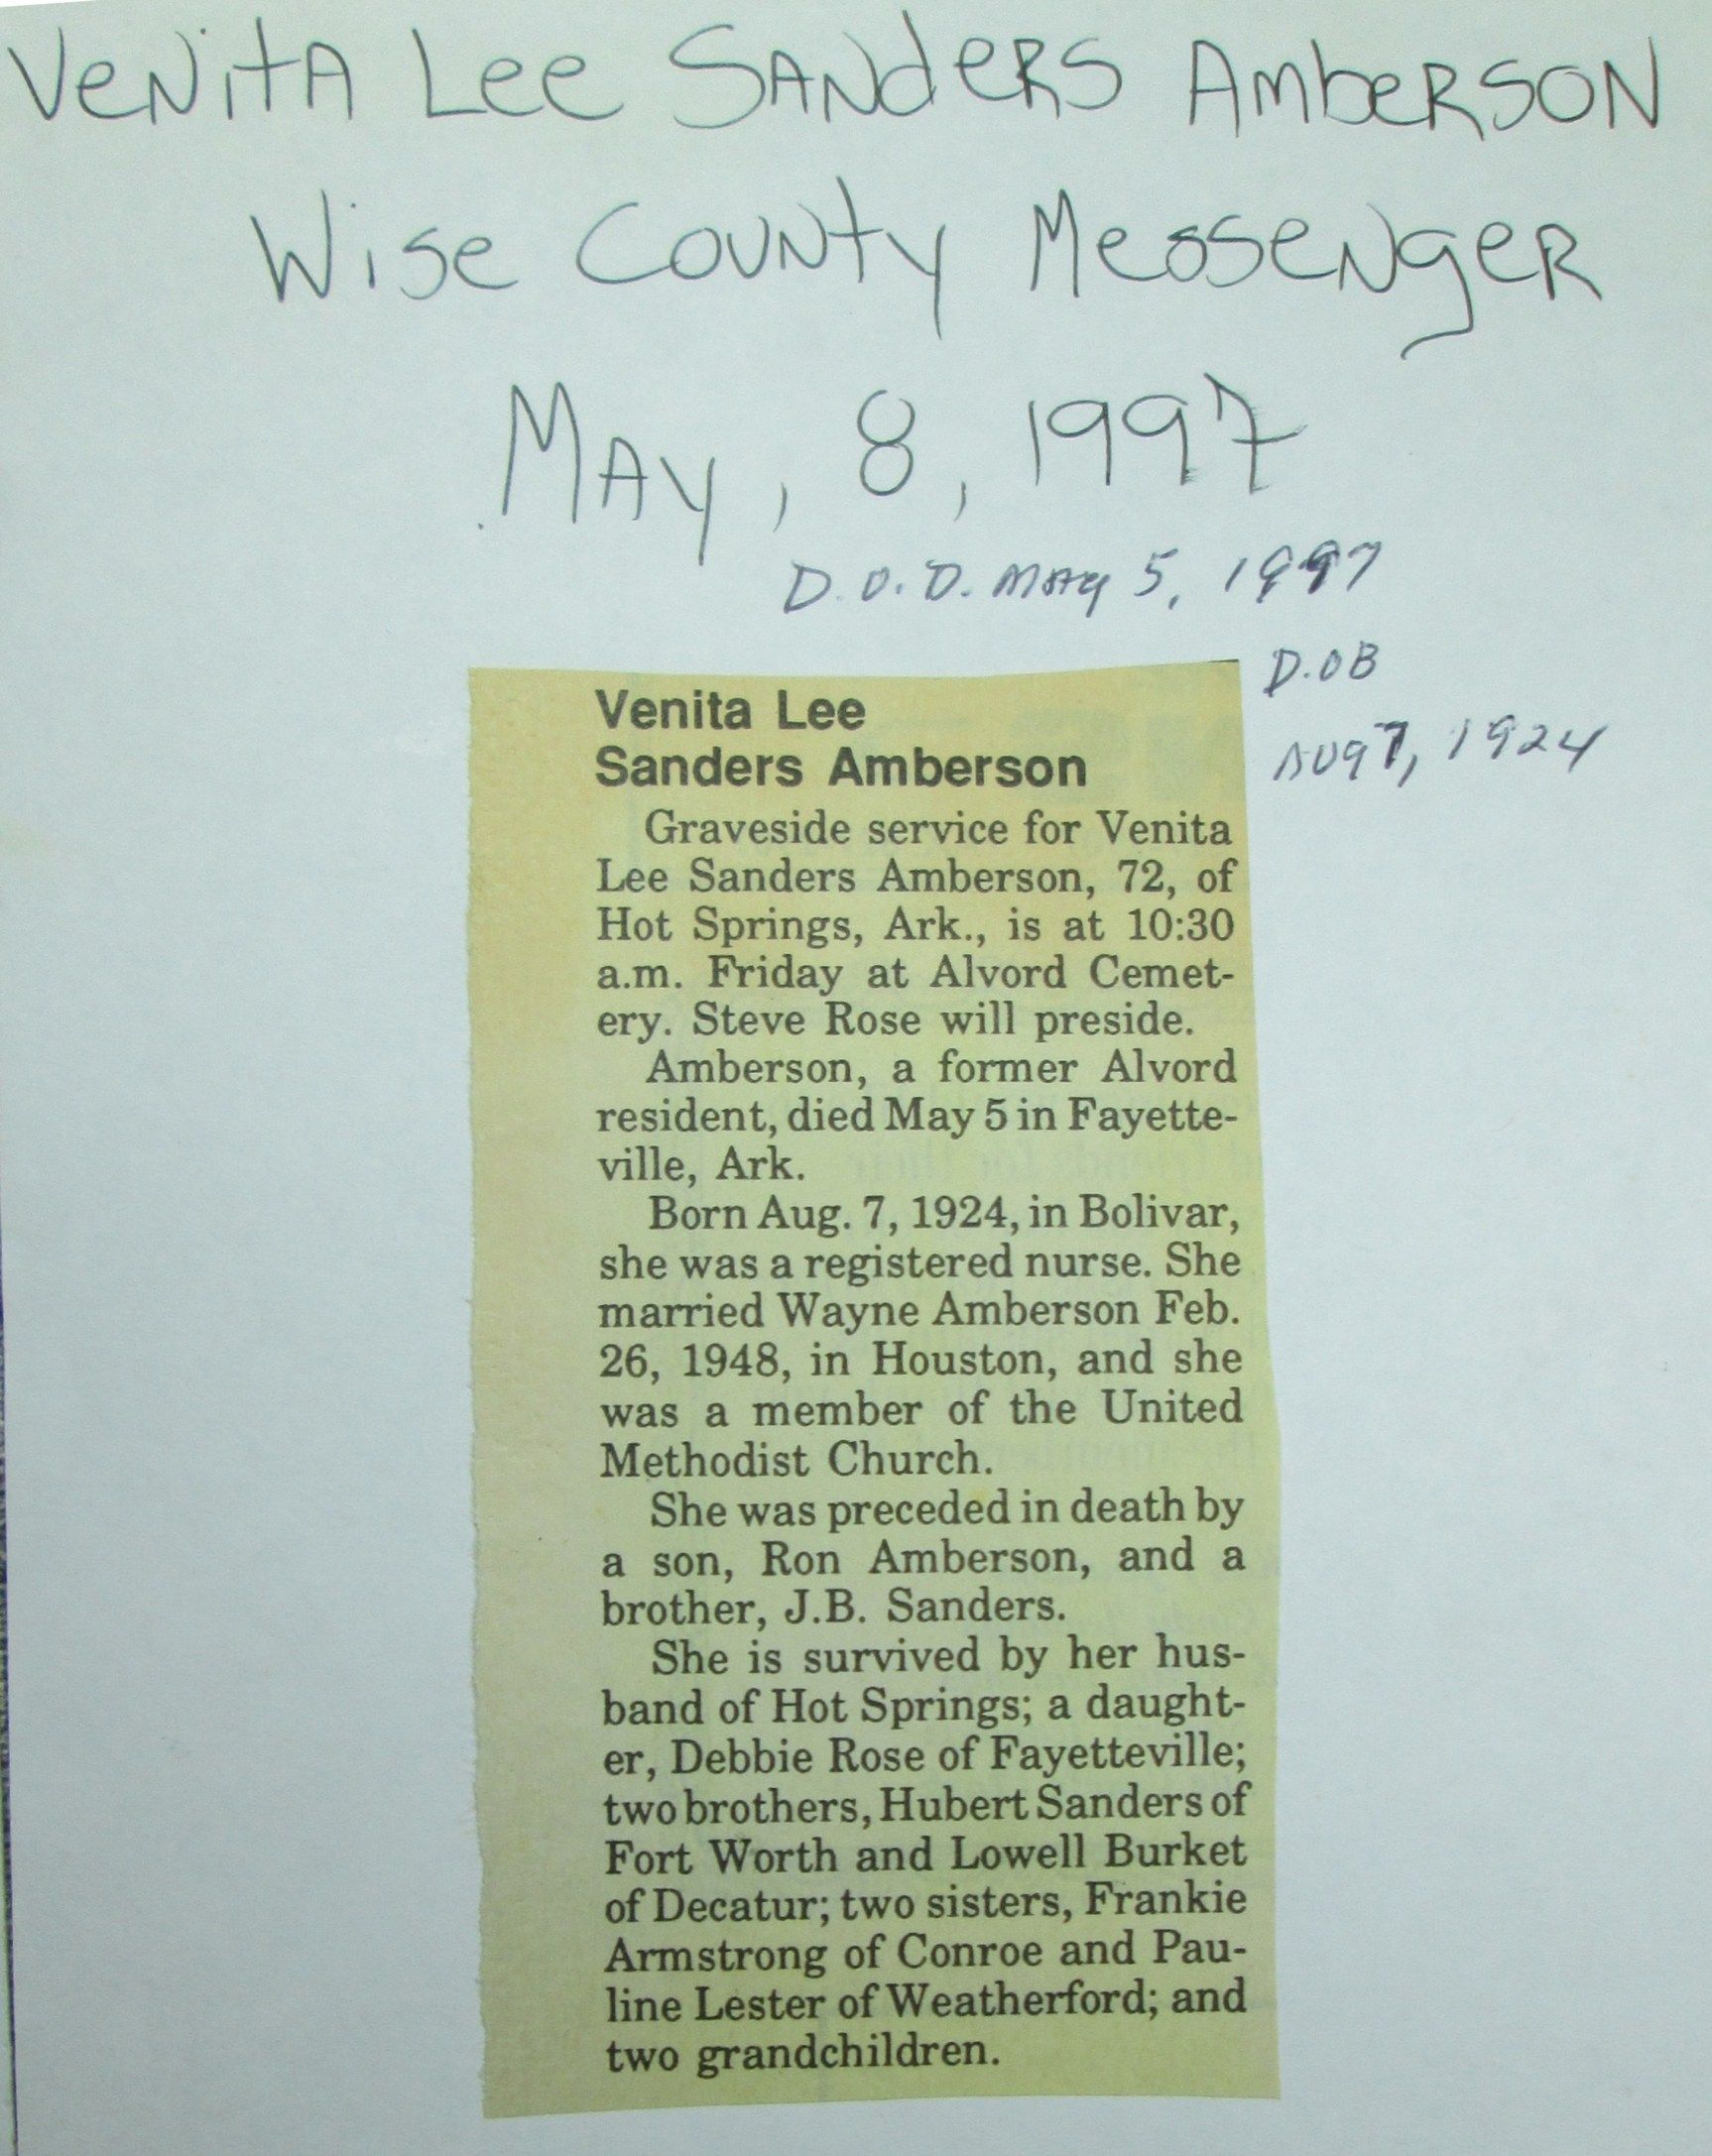 Venita Lee Sanders Amberson
Wise County Messenger
May, 8, 1997
D.O.D. May 5, 1997
D.OB
Aug 7, 1924
Venita Lee
Sanders Amberson
Graveside service for Venita
Lee Sanders Amberson, 72, of
Hot Springs, Ark., is at 10:30
a.m. Friday at Alvord Cemet-
ery. Steve Rose will preside.
Amberson, a former Alvord
resident, died May 5 in Fayette-
ville, Ark.
Born Aug. 7, 1924, in Bolivar,
she was a registered nurse. She
married Wayne Amberson Feb.
26, 1948, in Houston, and she
was a member of the United
Methodist Church.
She was preceded in death by
a son, Ron Amberson, and a
brother, J.B. Sanders.
She is survived by her hus-
band of Hot Springs; a daught-
er, Debbie Rose of Fayetteville;
two brothers, Hubert Sanders of
Fort Worth and Lowell Burket
of Decatur; two sisters, Frankie
Armstrong of Conroe and Pau-
line Lester of Weatherford; and
two grandchildren.